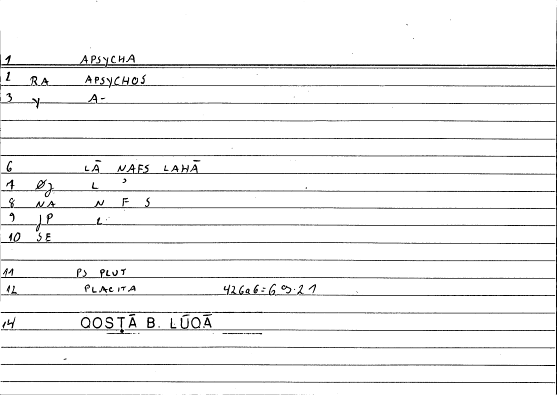 1 APSYCHA
2 RA APSYCHOS
3 y A-
6 LĀ NAFS LAHĀ
7 Øj L ʾ
8 NA N F S
9 JP L
10 SE
11 PS PLUT
12 PLACITA 426a6=69.21
14 QOSṬĀ B. LŪQĀ